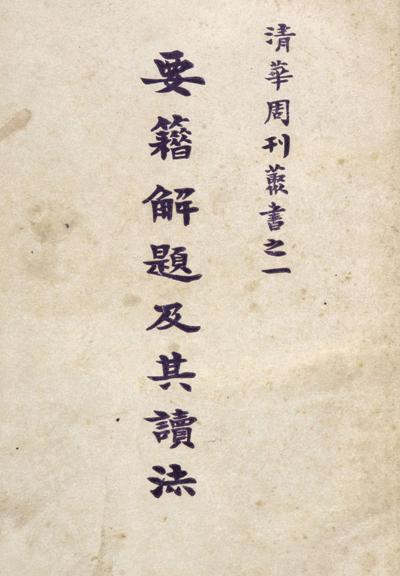 清華周刊叢書之一
要籍解題及其讀法